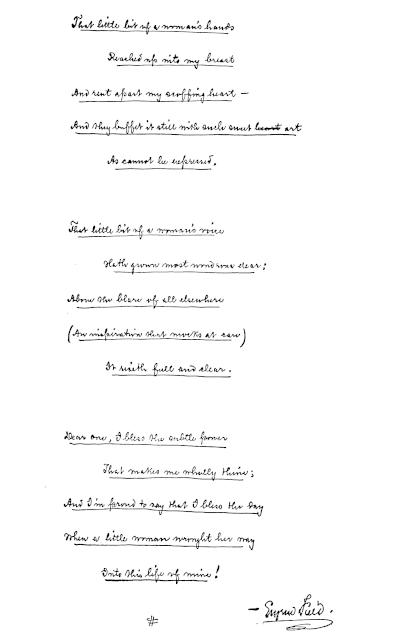 That little bit of a woman's hands
Reached up into my breast
And rent apart my scoffing heart —
And they buffet it still with such sweet art
As cannot be expressed.
That little bit of a woman's voice
Hath grown most wondrous dear;
Above the blare of all elsewhere
(An inspiration that mocks at care)
It riseth full and clear.
Dear one, I bless the subtle power
That makes me wholly thine;
And I'm proud to say that I bless the day
When a little woman wrought her way
Into this life of mine!
— Eugene Field.